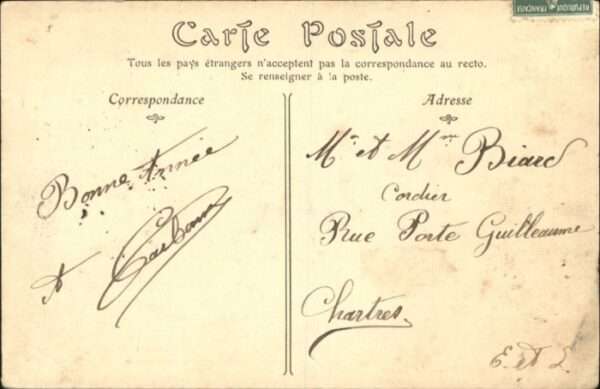 REPUBLIQUE FRANÇAISE
Carte Postale
Tous les pays étrangers n'acceptent pas la correspondance au recto.
Se renseigner à la poste.
Correspondance
Adresse
Bonne Année
A
Mr et Mme Biard
Cordier
Rue Porte Guilleaume
Chartres.
E. et L.